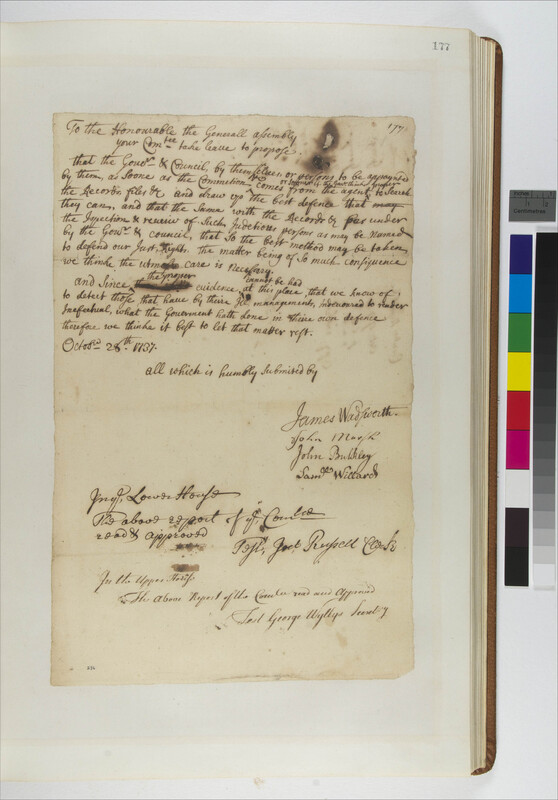 177
177
To the Honourable the Generall assembly
your Com:tee take leave to propose
that the Gov:r & Council, by themselves or persons to be appoynted
by them, as soone as the Commission comes from the agent to search
the Records files & and draw up the best defence that may
they can, and that the Same with the Records & under
the Inspection & review of Such Judicious persons as may be named
by the Gov:r & council, that So the best method may be taken
to defend our Just Rights. the matter being of So much consiquence
we thinke the utmost care is necessary.
the proper cannot be had
and Since evidence at this place, that we know of
to detect those that have by their managements, indevoured to render
Inefectual, what the Goverment hath done in their own defence
therefore we thinke it best to let that matter rest.
Octob:r 28th 1737.
all which is humbly Submited by
James Wadsworth
John Marsh
John Bulkley
Sam:ll Willard
In ye Lower House
The above report of ye Com:tee
read & approved
Test, Joct Russell Clerk
In the Upper House
The Above Report of the Com:tee read and Approved
Test George Wyllys Secretry
Centimetres